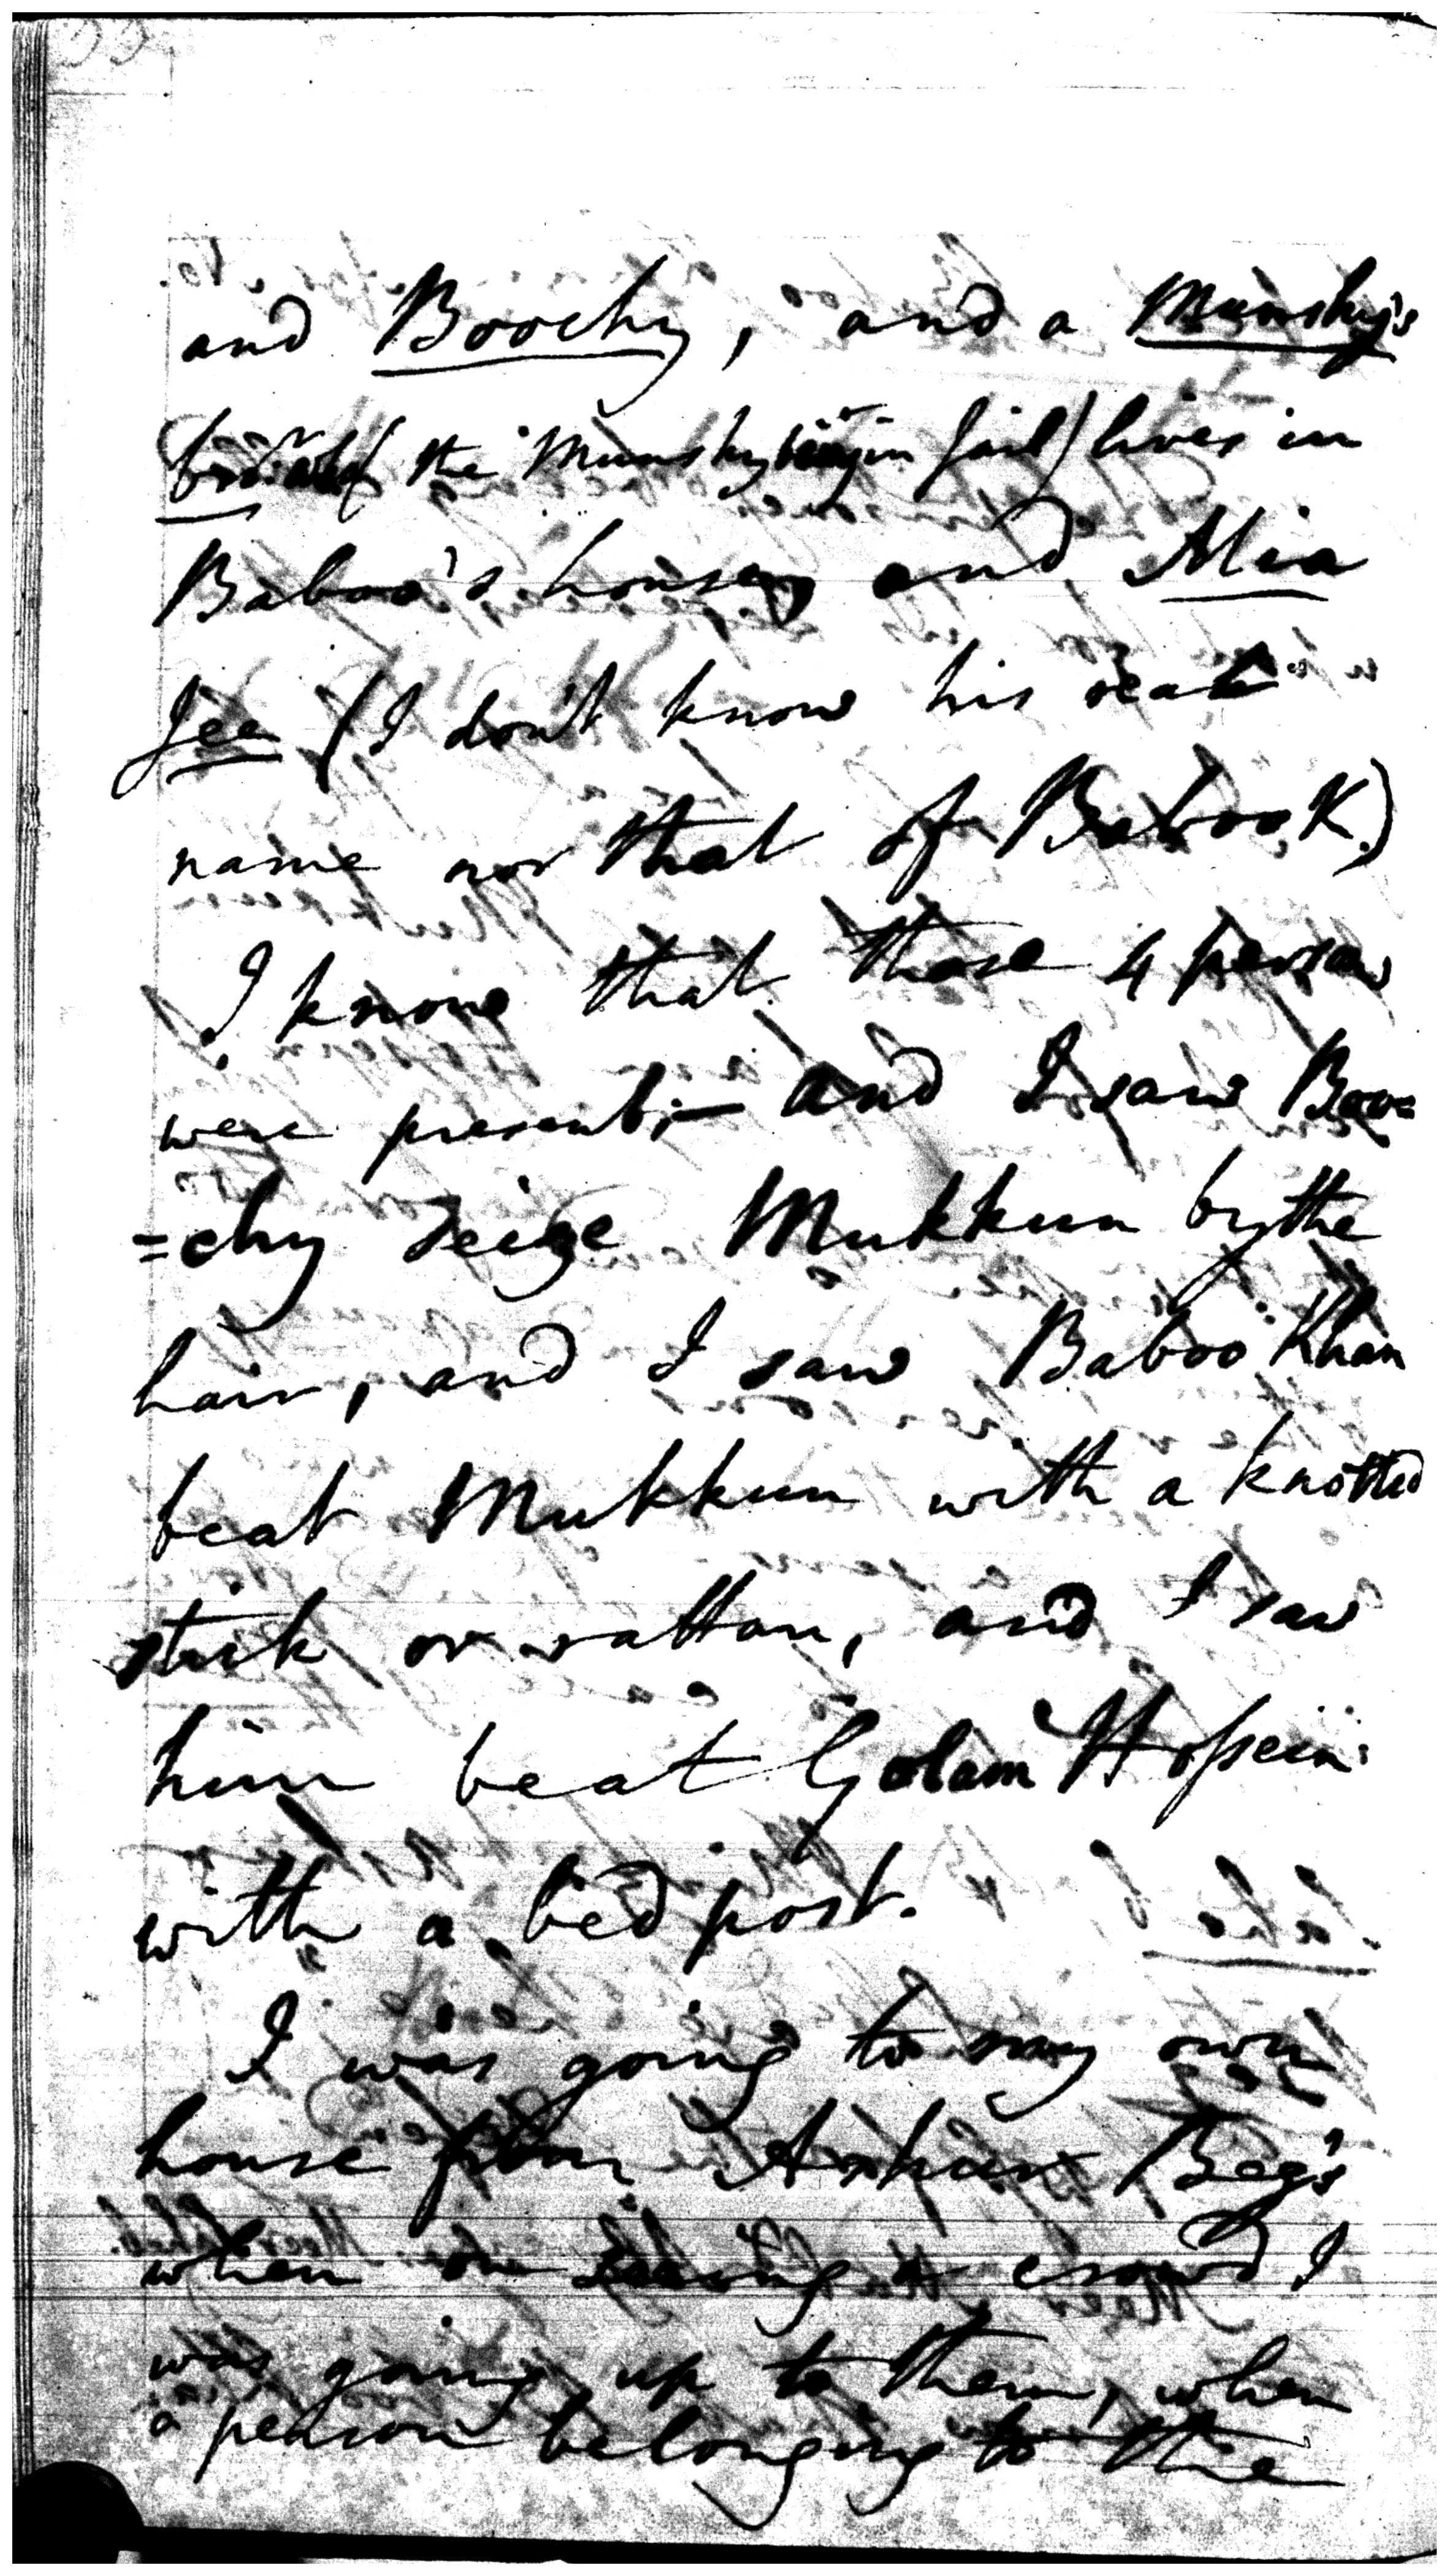 and Boochy, and a Munshy's
bror. (the Munshy being in Jail) lives in
Baboo's house, and Mia
Jee (I don't know his real
name nor that of Baboo K.)
I know that these 4 persons
were present; — and I saw Boo=
=chy seize Mukkun by the
hair, and I saw Baboo Khan
beat Mukkun with a knotted
stick or rattan, and I saw
him beat Golam Hossein
with a bed post.
I was going to my own
house from Beg's
when on seeing a crowd I
was going up to them, when
a person belonging to the